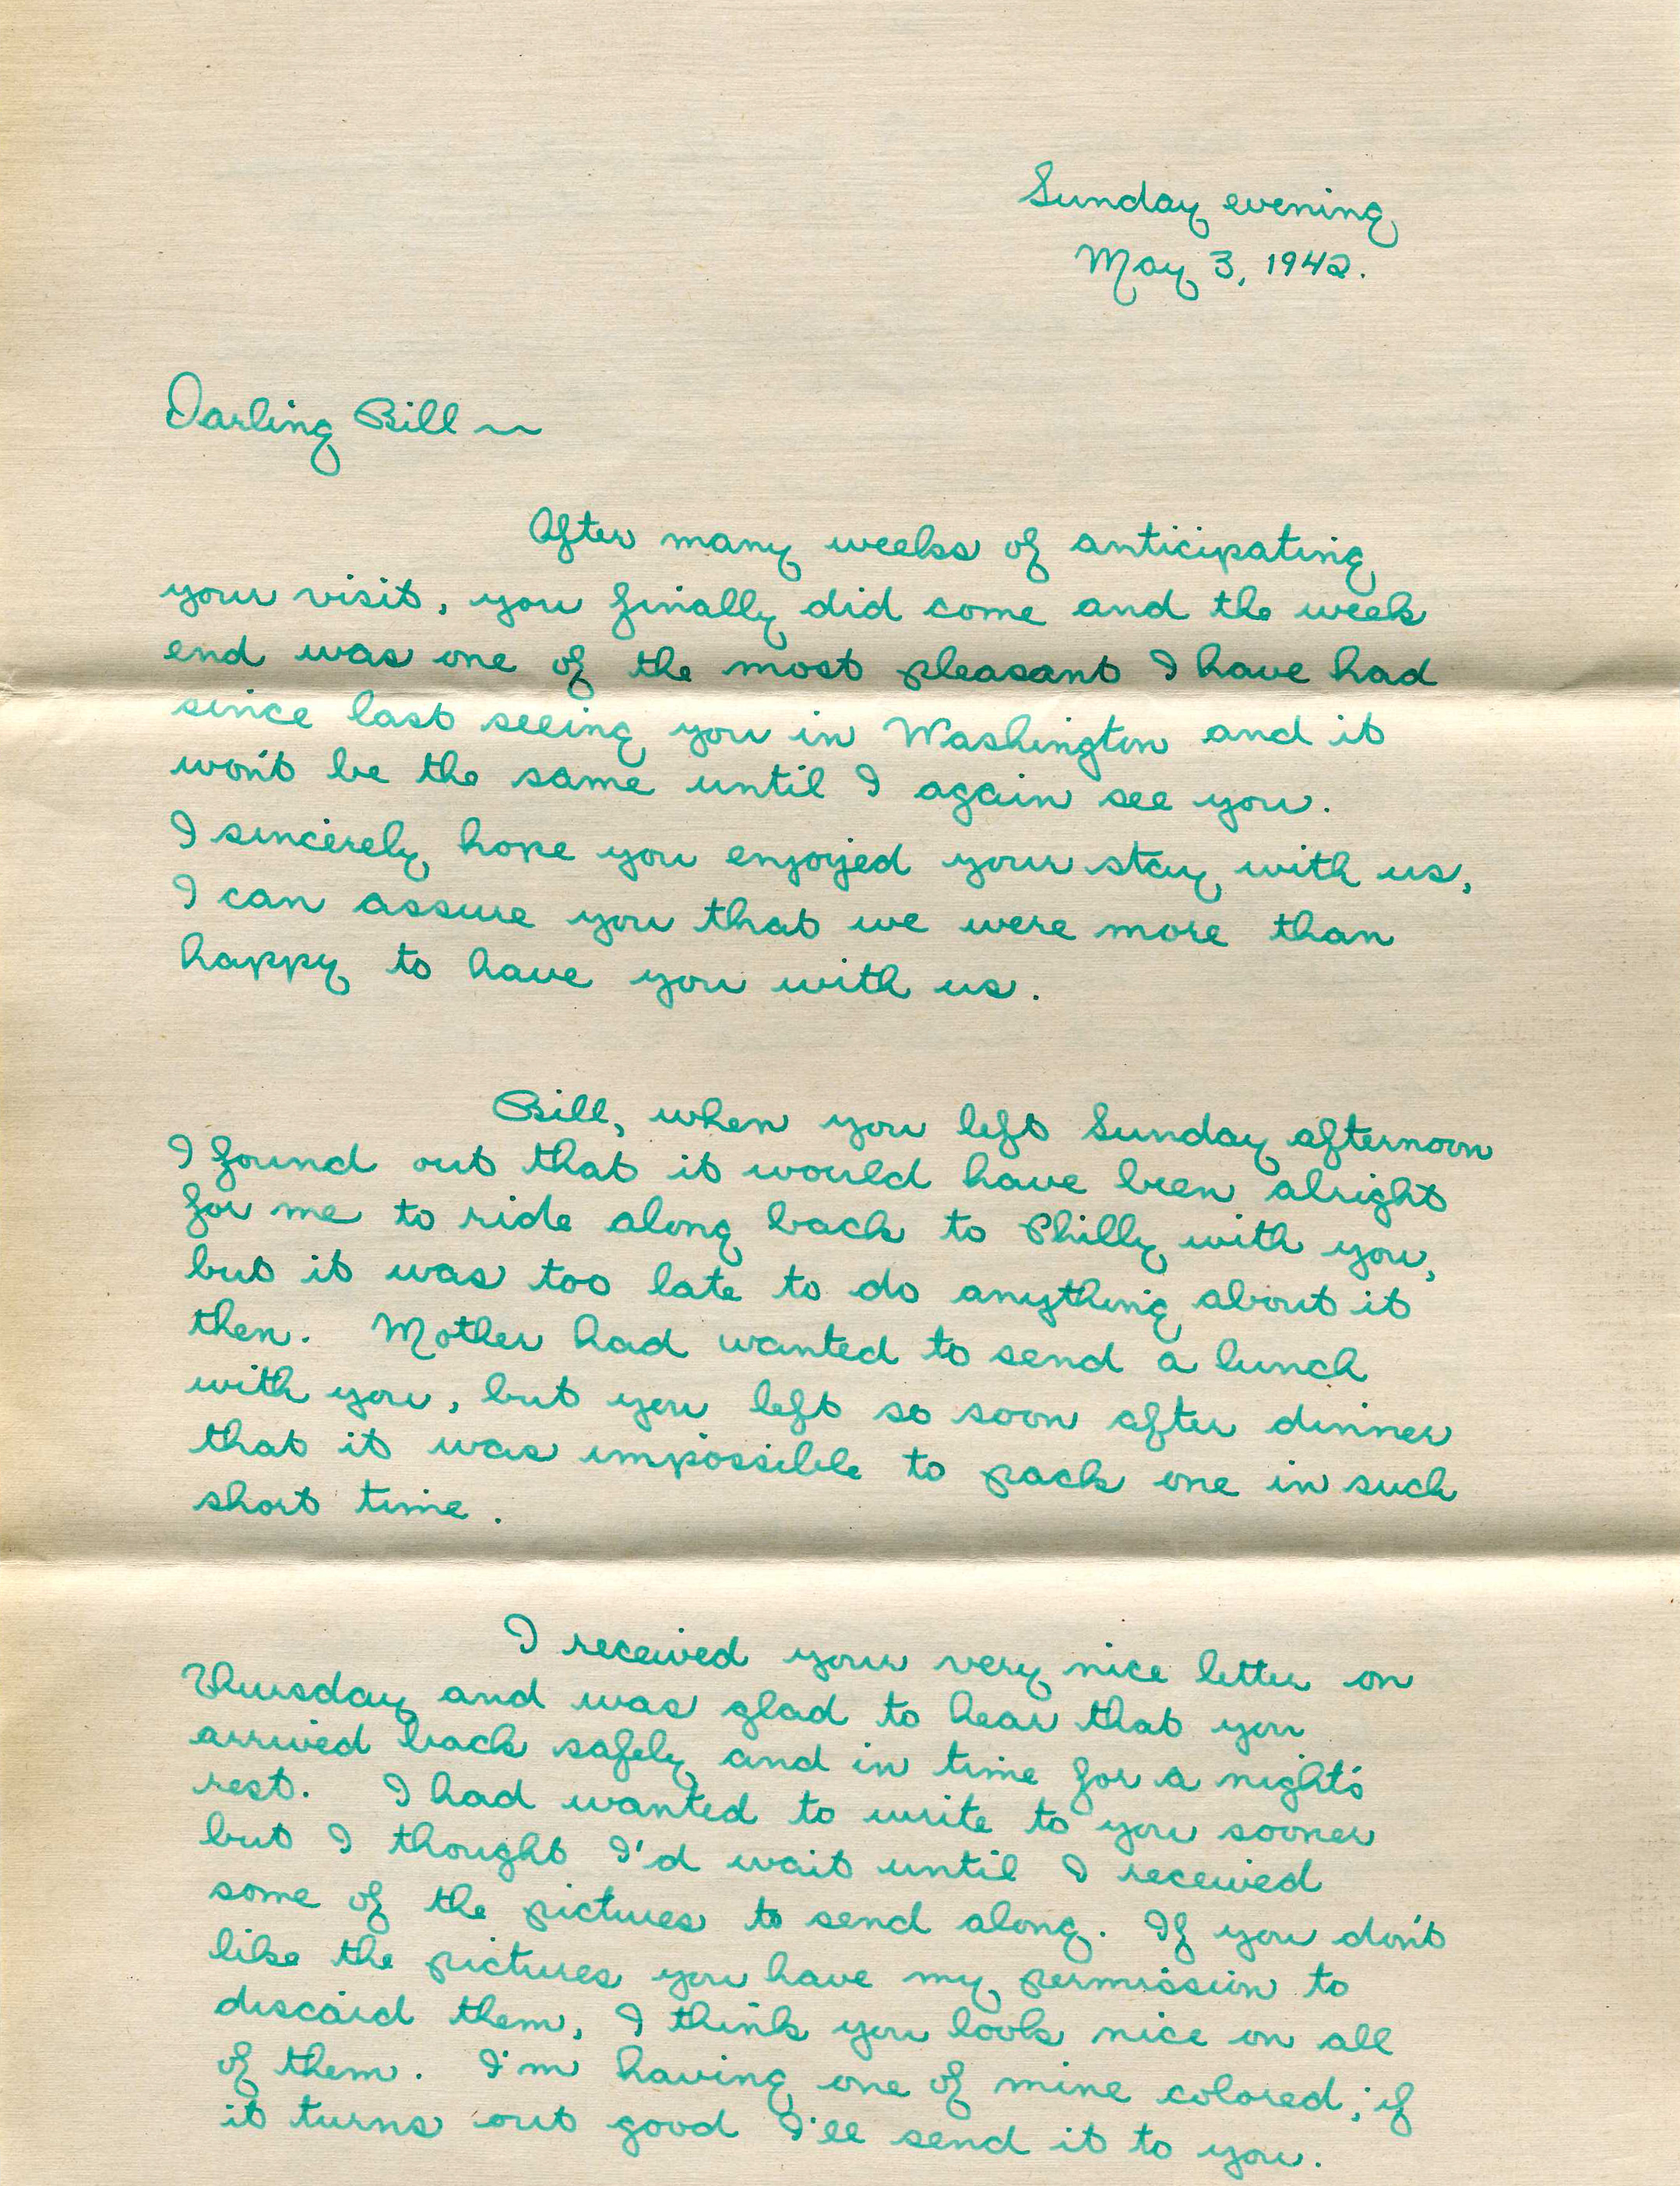 Sunday evening
May 3, 1942.
Darling Bill ~
After many weeks of anticipating
your visit, you finally did come and the week
end was one of the most pleasant I have had
since last seeing you in Washington and it
won't be the same until I again see you.
I sincerely hope you enjoyed your stay with us,
I can assure you that we were more than
happy to have you with us.
Bill, when you left Sunday afternoon
I found out that it would have been alright
for me to ride along back to Philly with you,
but it was too late to do anything about it
then. Mother had wanted to send a lunch
with you, but you left so soon after dinner
that it was impossible to pack one in such
short time.
I received your very nice letter on
Thursday and was glad to hear that you
arrived back safely and in time for a night's
rest. I had wanted to write to you sooner
but I thought I'd wait until I received
some of the pictures to send along. If you don't
like the pictures you have my permission to
discard them, I think you look nice on all
of them. I'm having one of mine colored; if
it turns out good I'll send it to you.